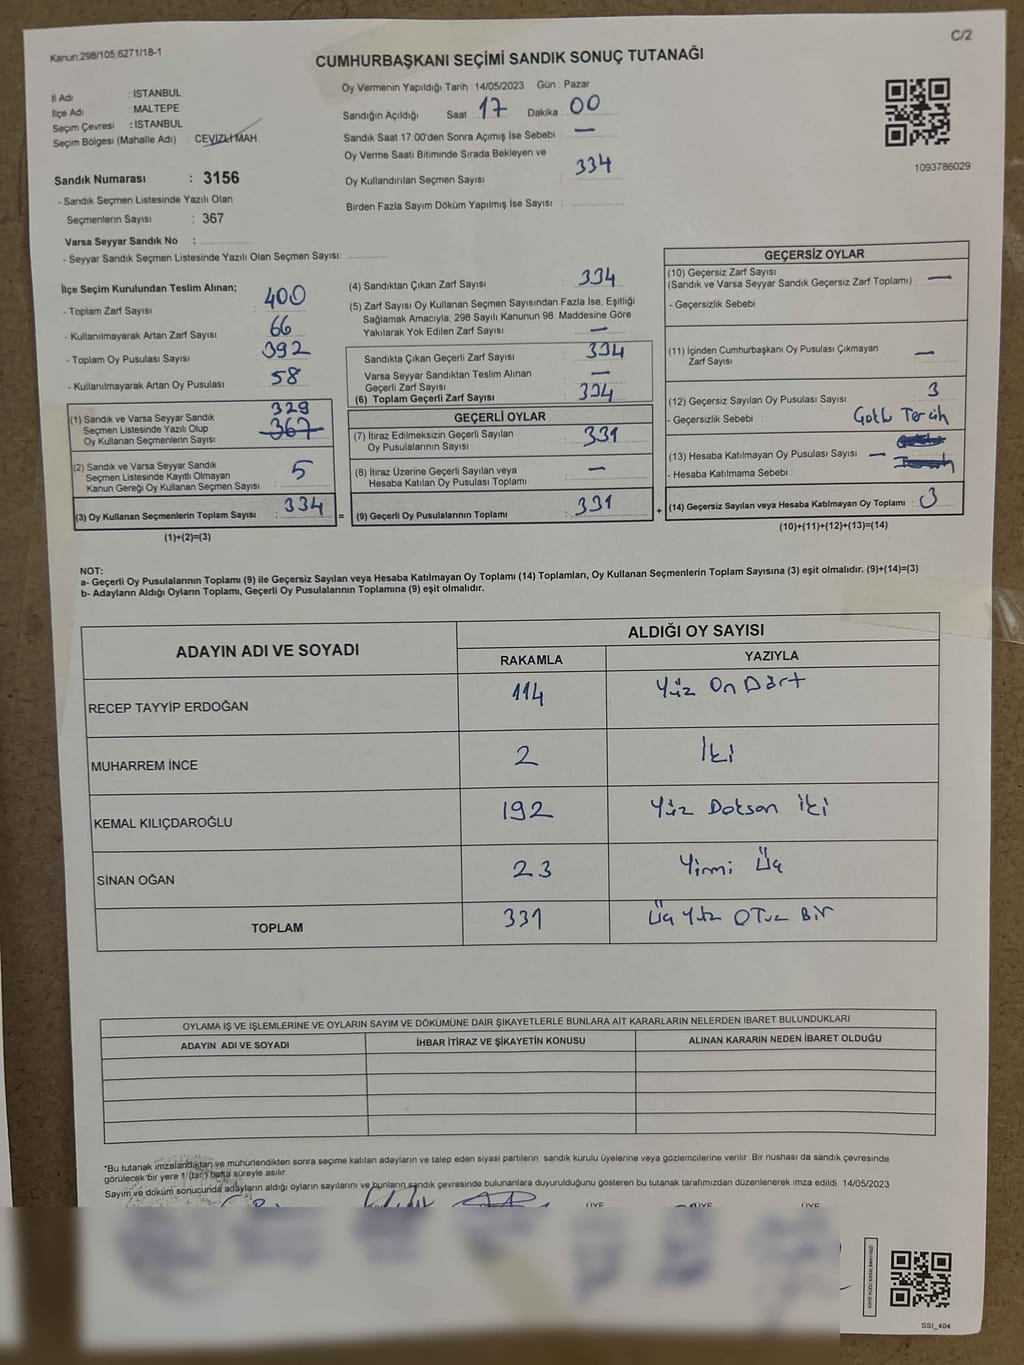 Kanun:298/105;6271/18-1
C/2
CUMHURBAŞKANI SEÇİMİ SANDIK SONUÇ TUTANAĞI
İl Adı : İSTANBUL
İlçe Adı : MALTEPE
Seçim Çevresi : İSTANBUL
Seçim Bölgesi (Mahalle Adı) : CEVİZLİ MAH
Sandık Numarası : 3156
- Sandık Seçmen Listesinde Yazılı Olan
Seçmenlerin Sayısı : 367
Varsa Seyyar Sandık No :
- Seyyar Sandık Seçmen Listesinde Yazılı Olan Seçmen Sayısı:
Oy Vermenin Yapıldığı Tarih : 14/05/2023 Gün : Pazar
Sandığın Açıldığı Saat : 17 Dakika : 00
Sandık Saat 17.00'den Sonra Açımış İse Sebebi : —
Oy Verme Saati Bitiminde Sırada Bekleyen ve
Oy Kullandırılan Seçmen Sayısı : 334
Birden Fazla Sayım Döküm Yapılmış İse Sayısı :
1093786029
İlçe Seçim Kurulundan Teslim Alınan;
- Toplam Zarf Sayısı : 400
- Kullanılmayarak Artan Zarf Sayısı : 66
- Toplam Oy Pusulası Sayısı : 392
- Kullanılmayarak Artan Oy Pusulası : 58
329
(1) Sandık ve Varsa Seyyar Sandık
Seçmen Listesinde Yazılı Olup : 367
Oy Kullanan Seçmenlerin Sayısı
(2) Sandık ve Varsa Seyyar Sandık
Seçmen Listesinde Kayıtlı Olmayan : 5
Kanun Gereği Oy Kullanan Seçmen Sayısı
(3) Oy Kullanan Seçmenlerin Toplam Sayısı : 334
(1)+(2)=(3)
(4) Sandıktan Çıkan Zarf Sayısı : 334
(5) Zarf Sayısı Oy Kullanan Seçmen Sayısından Fazla İse, Eşitliği
Sağlamak Amacıyla: 298 Sayılı Kanunun 98. Maddesine Göre
Yakılarak Yok Edilen Zarf Sayısı : —
Sandıkta Çıkan Geçerli Zarf Sayısı : 334
Varsa Seyyar Sandıktan Teslim Alınan
Geçerli Zarf Sayısı : —
(6) Toplam Geçerli Zarf Sayısı : 334
GEÇERLİ OYLAR
(7) İtiraz Edilmeksizin Geçerli Sayılan
Oy Pusulalarının Sayısı : 331
(8) İtiraz Üzerine Geçerli Sayılan veya
Hesaba Katılan Oy Pusulası Toplamı : —
= (9) Geçerli Oy Pusulalarının Toplamı : 331
GEÇERSİZ OYLAR
(10) Geçersiz Zarf Sayısı
(Sandık ve Varsa Seyyar Sandık Geçersiz Zarf Toplamı) : —
- Geçersizlik Sebebi :
(11) İçinden Cumhurbaşkanı Oy Pusulası Çıkmayan
Zarf Sayısı : —
(12) Geçersiz Sayılan Oy Pusulası Sayısı : 3
- Geçersizlik Sebebi : Çoklu Tercih
(13) Hesaba Katılmayan Oy Pusulası Sayısı : —
- Hesaba Katılmama Sebebi :
+ (14) Geçersiz Sayılan veya Hesaba Katılmayan Oy Toplamı : 3
(10)+(11)+(12)+(13)=(14)
NOT:
a- Geçerli Oy Pusulalarının Toplamı (9) ile Geçersiz Sayılan veya Hesaba Katılmayan Oy Toplamı (14) Toplamları, Oy Kullanan Seçmenlerin Toplam Sayısına (3) eşit olmalıdır. (9)+(14)=(3)
b- Adayların Aldığı Oyların Toplamı, Geçerli Oy Pusulalarının Toplamına (9) eşit olmalıdır.
ADAYIN ADI VE SOYADI
ALDIĞI OY SAYISI
RAKAMLA YAZIYLA
RECEP TAYYİP ERDOĞAN 114 Yüz On Dört
MUHARREM İNCE 2 İki
KEMAL KILIÇDAROĞLU 192 Yüz Doksan İki
SİNAN OĞAN 23 Yirmi Üç
TOPLAM 331 Üç Yüz OTuz Bir
OYLAMA İŞ VE İŞLEMLERİNE VE OYLARIN SAYIM VE DÖKÜMÜNE DAİR ŞİKAYETLERLE BUNLARA AİT KARARLARIN NELERDEN İBARET BULUNDUKLARI
ADAYIN ADI VE SOYADI İHBAR İTİRAZ VE ŞİKAYETİN KONUSU ALINAN KARARIN NEDEN İBARET OLDUĞU
*Bu tutanak imzalandıktan ve mühürlendikten sonra seçime katılan adayların ve talep eden siyasi partilerin sandık kurulu üyelerine veya gözlemcilerine verilir. Bir nüshası da sandık çevresinde
görülecek bir yere 1 (bir) hafta süreyle asılır.
Sayım ve döküm sonucunda adayların aldığı oyların sayılarını ve bunların sandık çevresinde bulunanlara duyurulduğunu gösteren bu tutanak tarafımızdan düzenlenerek imza edildi. 14/05/2023
ÜYE ÜYE ÜYE
SSI_404